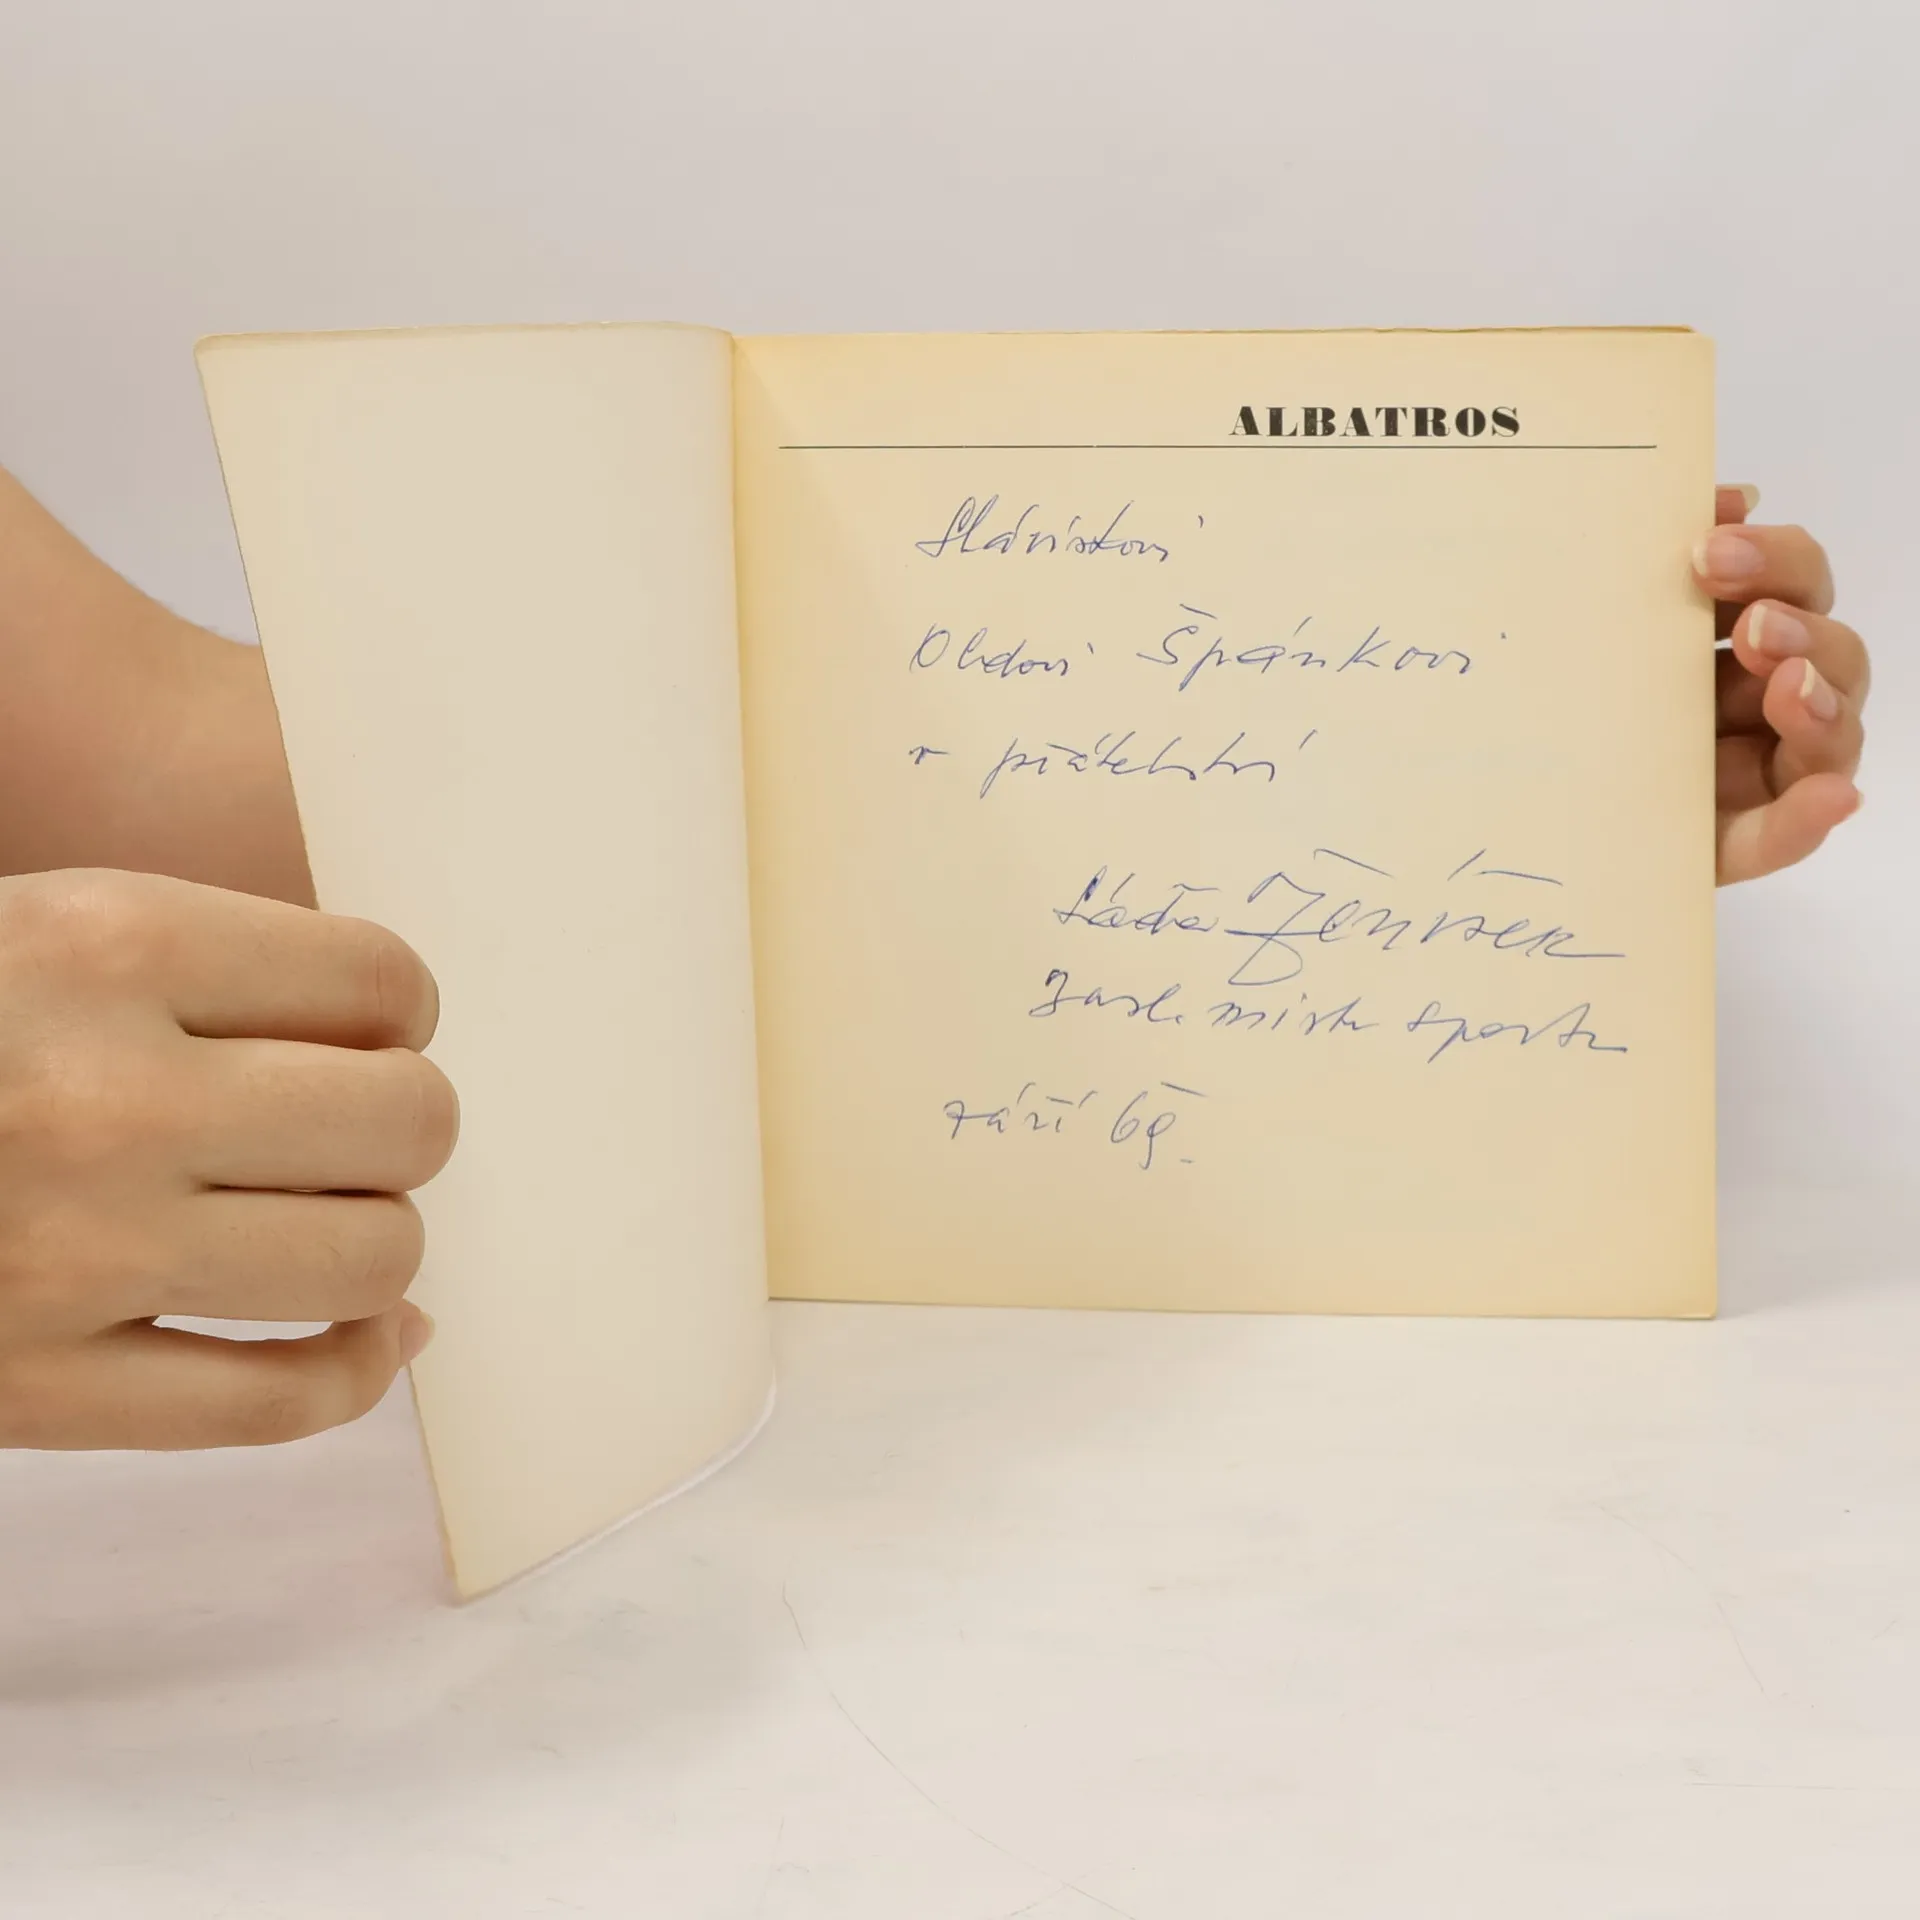 ALBATROS
Slávistovi
Oldovi Špánkovi
v přátelství
Láďa Ženíšek
zasl. mistr sportu
září 69.